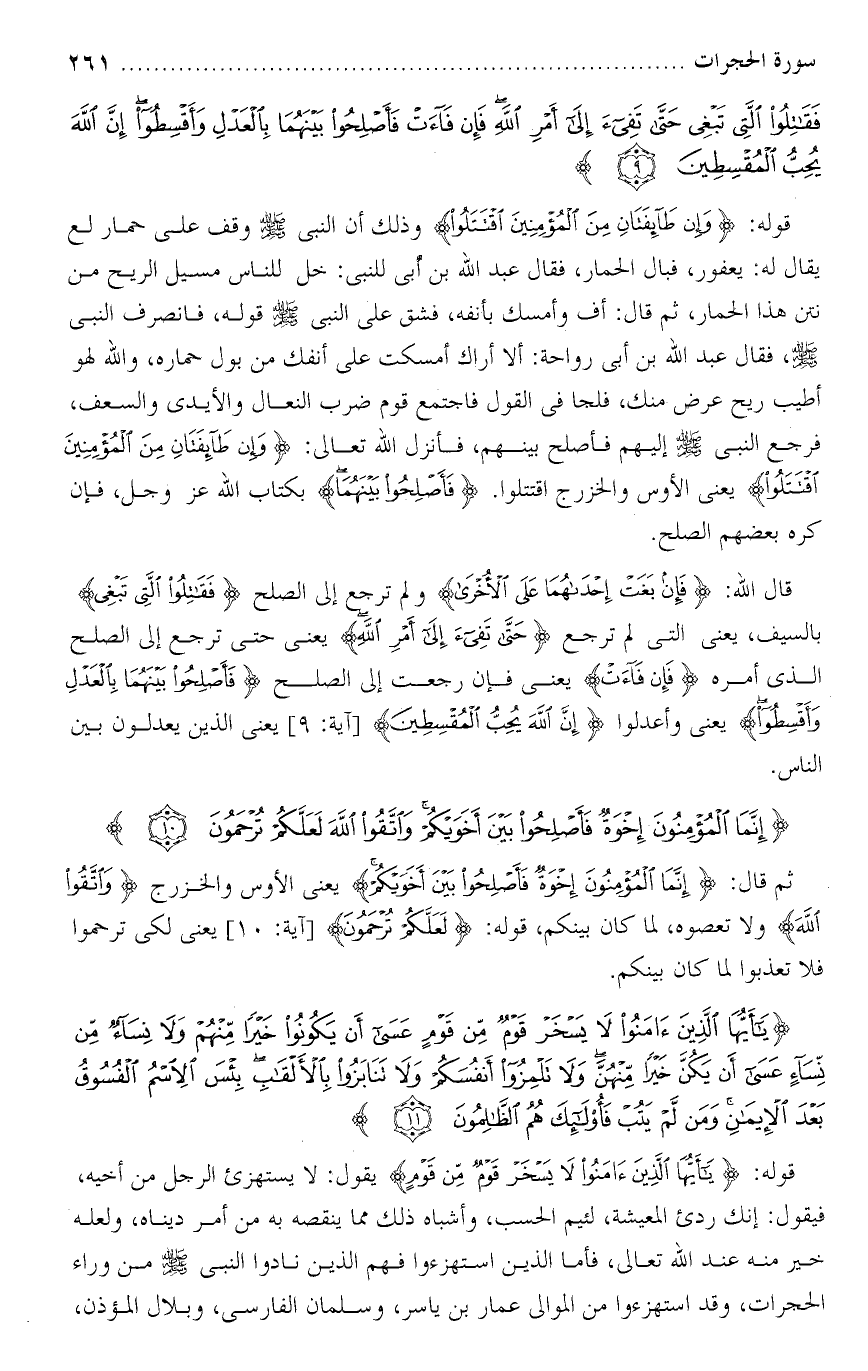 سورة الحجرات ........................................................................ ٢٦١
فَقَٰتِلُوا۟ ٱلَّتِى تَبْغِى حَتَّىٰ تَفِىٓءَ إِلَىٰٓ أَمْرِ ٱللَّهِ ۚ فَإِن فَآءَتْ فَأَصْلِحُوا۟ بَيْنَهُمَا بِٱلْعَدْلِ وَأَقْسِطُوٓا۟ ۖ إِنَّ ٱللَّهَ
يُحِبُّ ٱلْمُقْسِطِينَ ٩ ﴾
قوله: ﴿ وَإِن طَآئِفَتَانِ مِنَ ٱلْمُؤْمِنِينَ ٱقْتَتَلُوا۟ ﴾ وذلك أن النبى ﷺ وقف على حمار لع
يقال له: يعفور، فبال الحمار، فقال عبد الله بن أبى للنبى: خل للناس مسيل الريح من
نتن هذا الحمار، ثم قال: أف وأمسك بأنفه، فشق على النبى ﷺ قوله، فانصرف النبى
ﷺ، فقال عبد الله بن أبى رواحة: ألا أراك أمسكت على أنفك من بول حماره، والله لهو
أطيب ريح عرض منك، فلجا فى القول فاجتمع قوم ضرب النعال والأيدى والسعف،
فرجع النبى ﷺ إليهم فأصلح بينهم، فأنزل الله تعالى: ﴿ وَإِن طَآئِفَتَانِ مِنَ ٱلْمُؤْمِنِينَ
ٱقْتَتَلُوا۟ ﴾ يعنى الأوس والخزرج اقتتلوا. ﴿ فَأَصْلِحُوا۟ بَيْنَهُمَا ۖ ﴾ بكتاب الله عز وجل، فإن
كره بعضهم الصلح.
قال الله: ﴿ فَإِنۢ بَغَتْ إِحْدَىٰهُمَا عَلَى ٱلْأُخْرَىٰ ﴾ ولم ترجع إلى الصلح ﴿ فَقَٰتِلُوا۟ ٱلَّتِى تَبْغِى ﴾
بالسيف، يعنى التى لم ترجع ﴿ حَتَّىٰ تَفِىٓءَ إِلَىٰٓ أَمْرِ ٱللَّهِ ۚ ﴾ يعنى حتى ترجع إلى الصلح
الذى أمره ﴿ فَإِن فَآءَتْ ﴾ يعنى فإن رجعت إلى الصلح ﴿ فَأَصْلِحُوا۟ بَيْنَهُمَا بِٱلْعَدْلِ
وَأَقْسِطُوٓا۟ ۖ ﴾ يعنى وأعدلوا ﴿ إِنَّ ٱللَّهَ يُحِبُّ ٱلْمُقْسِطِينَ ﴾ [آية: ٩] يعنى الذين يعدلون بين
الناس.
﴿ إِنَّمَا ٱلْمُؤْمِنُونَ إِخْوَةٌ فَأَصْلِحُوا۟ بَيْنَ أَخَوَيْكُمْ ۚ وَٱتَّقُوا۟ ٱللَّهَ لَعَلَّكُمْ تُرْحَمُونَ ١٠ ﴾
ثم قال: ﴿ إِنَّمَا ٱلْمُؤْمِنُونَ إِخْوَةٌ فَأَصْلِحُوا۟ بَيْنَ أَخَوَيْكُمْ ۚ ﴾ يعنى الأوس والخزرج ﴿ وَٱتَّقُوا۟
ٱللَّهَ ﴾ ولا تعصوه، لما كان بينكم، قوله: ﴿ لَعَلَّكُمْ تُرْحَمُونَ ﴾ [آية: ١٠] يعنى لكى ترحموا
فلا تعذبوا لما كان بينكم.
﴿ يَٰٓأَيُّهَا ٱلَّذِينَ ءَامَنُوا۟ لَا يَسْخَرْ قَوْمٌ مِّن قَوْمٍ عَسَىٰٓ أَن يَكُونُوا۟ خَيْرًا مِّنْهُمْ وَلَا نِسَآءٌ مِّن
نِّسَآءٍ عَسَىٰٓ أَن يَكُنَّ خَيْرًا مِّنْهُنَّ ۖ وَلَا تَلْمِزُوٓا۟ أَنفُسَكُمْ وَلَا تَنَابَزُوا۟ بِٱلْأَلْقَٰبِ ۖ بِئْسَ ٱلِٱسْمُ ٱلْفُسُوقُ
بَعْدَ ٱلْإِيمَٰنِ ۚ وَمَن لَّمْ يَتُبْ فَأُو۟لَٰٓئِكَ هُمُ ٱلظَّٰلِمُونَ ١١ ﴾
قوله: ﴿ يَٰٓأَيُّهَا ٱلَّذِينَ ءَامَنُوا۟ لَا يَسْخَرْ قَوْمٌ مِّن قَوْمٍ ﴾ يقول: لا يستهزئ الرجل من أخيه،
فيقول: إنك ردئ المعيشة، لئيم الحسب، وأشباه ذلك مما ينقصه به من أمر ديناه، ولعله
خير منه عند الله تعالى، فأما الذين استهزءوا فهم الذين نادوا النبى ﷺ من وراء
الحجرات، وقد استهزءوا من الموالى عمار بن ياسر، وسلمان الفارسى، وبلال المؤذن،